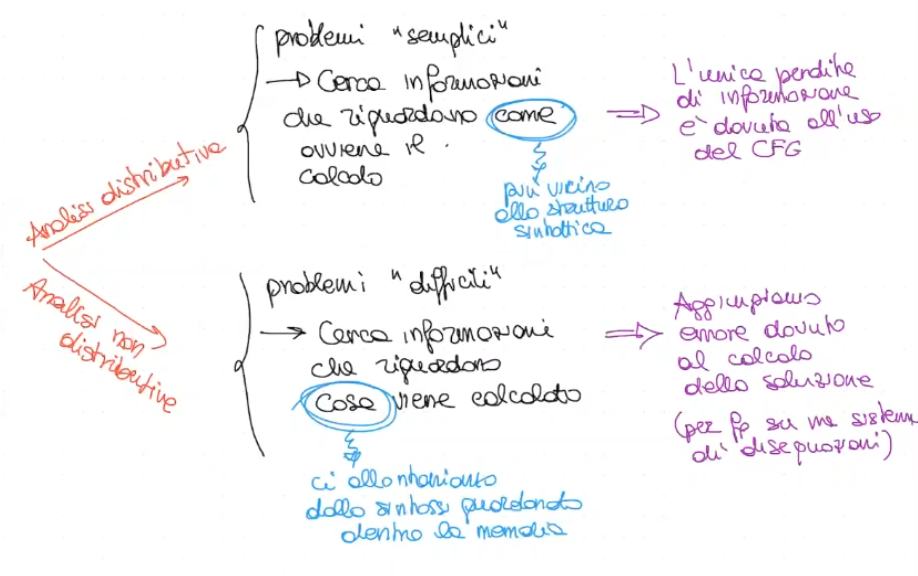 Analisi distributive
problemi "semplici"
→ Cerca informazioni
che riguardano come
avviene il
calcolo
più vicino
alla struttura
sintattica
⇒ L'unica perdita
di informazione
è dovuta all'uso
del CFG
Analisi non
distributive
problemi "difficili"
→ Cerca informazioni
che riguardano
cosa viene calcolato
ci allontaniamo
dalla sintassi guardando
dentro la memoria
⇒ Aggiungiamo
errore dovuto
al calcolo
della soluzione
(per fp su un sistema
di disequazioni)